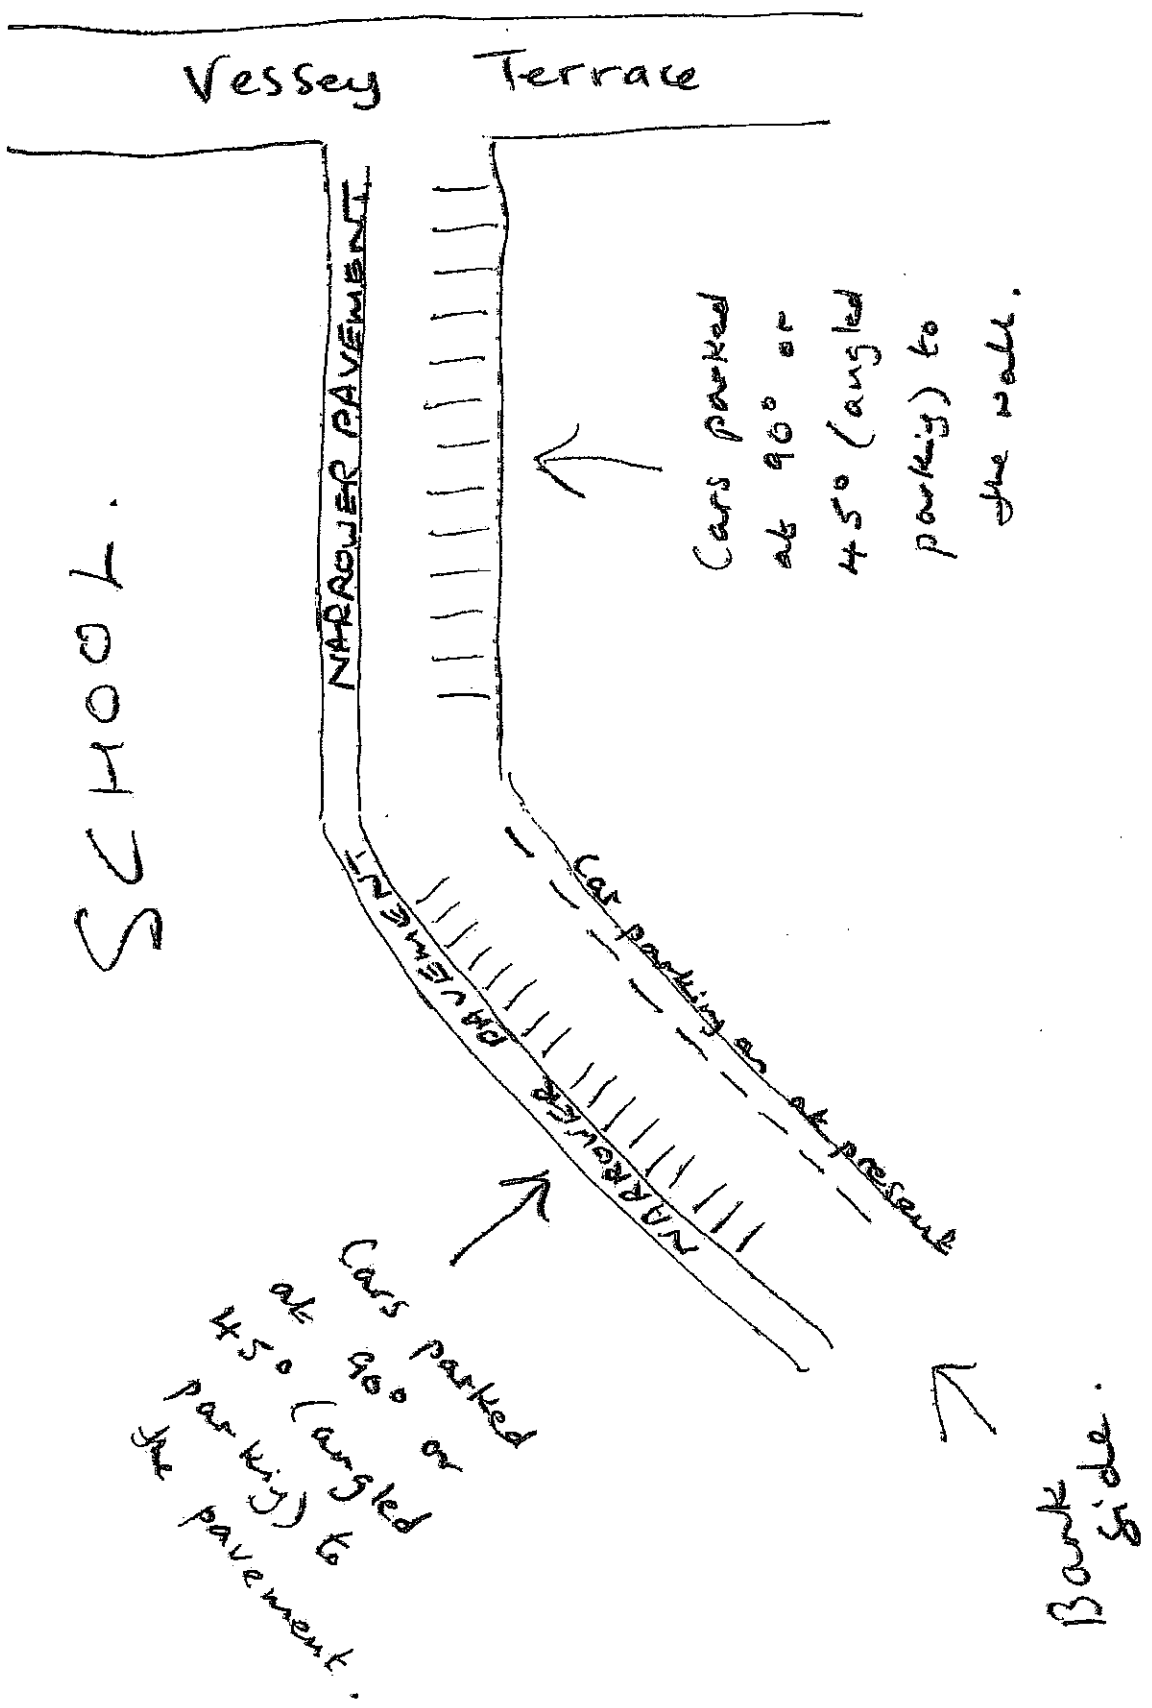 Vessey Terrace
SCHOOL.
NARROWER PAVEMENT
Cars parked
at 90° or
45° (angled
parking) to
the wall.
NARROWER PAVEMENT
Car parking as at present
Cars parked
at 90° or
45° (angled
parking) to
the pavement.
Bank
Side.